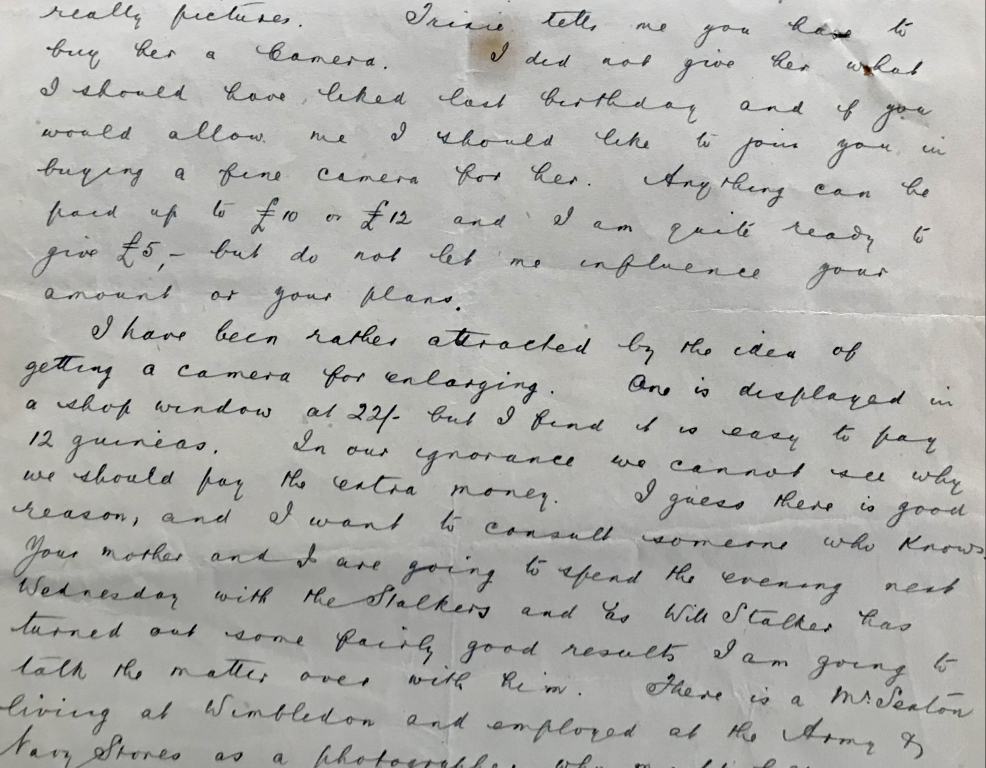 really pictures. Trixie tells me you have to
buy her a Camera. I did not give her what
I should have liked last birthday and if you
would allow me I should like to join you in
buying a fine camera for her. Anything can be
paid up to £10 or £12 and I am quite ready to
give £5,- but do not let me influence your
amount or your plans.
I have been rather attracted by the idea of
getting a camera for enlarging. One is displayed in
a shop window at 22/- but I find it is easy to pay
12 guineas. In our ignorance we cannot see why
we should pay the extra money. I guess there is good
reason, and I want to consult someone who knows.
Your mother and I are going to spend the evening next
Wednesday with the Stalkers and as Will Stalker has
turned out some fairly good results I am going to
talk the matter over with him. There is a Mr. Seaton
living at Wimbledon and employed at the Army &
Navy Stores as a photographer who